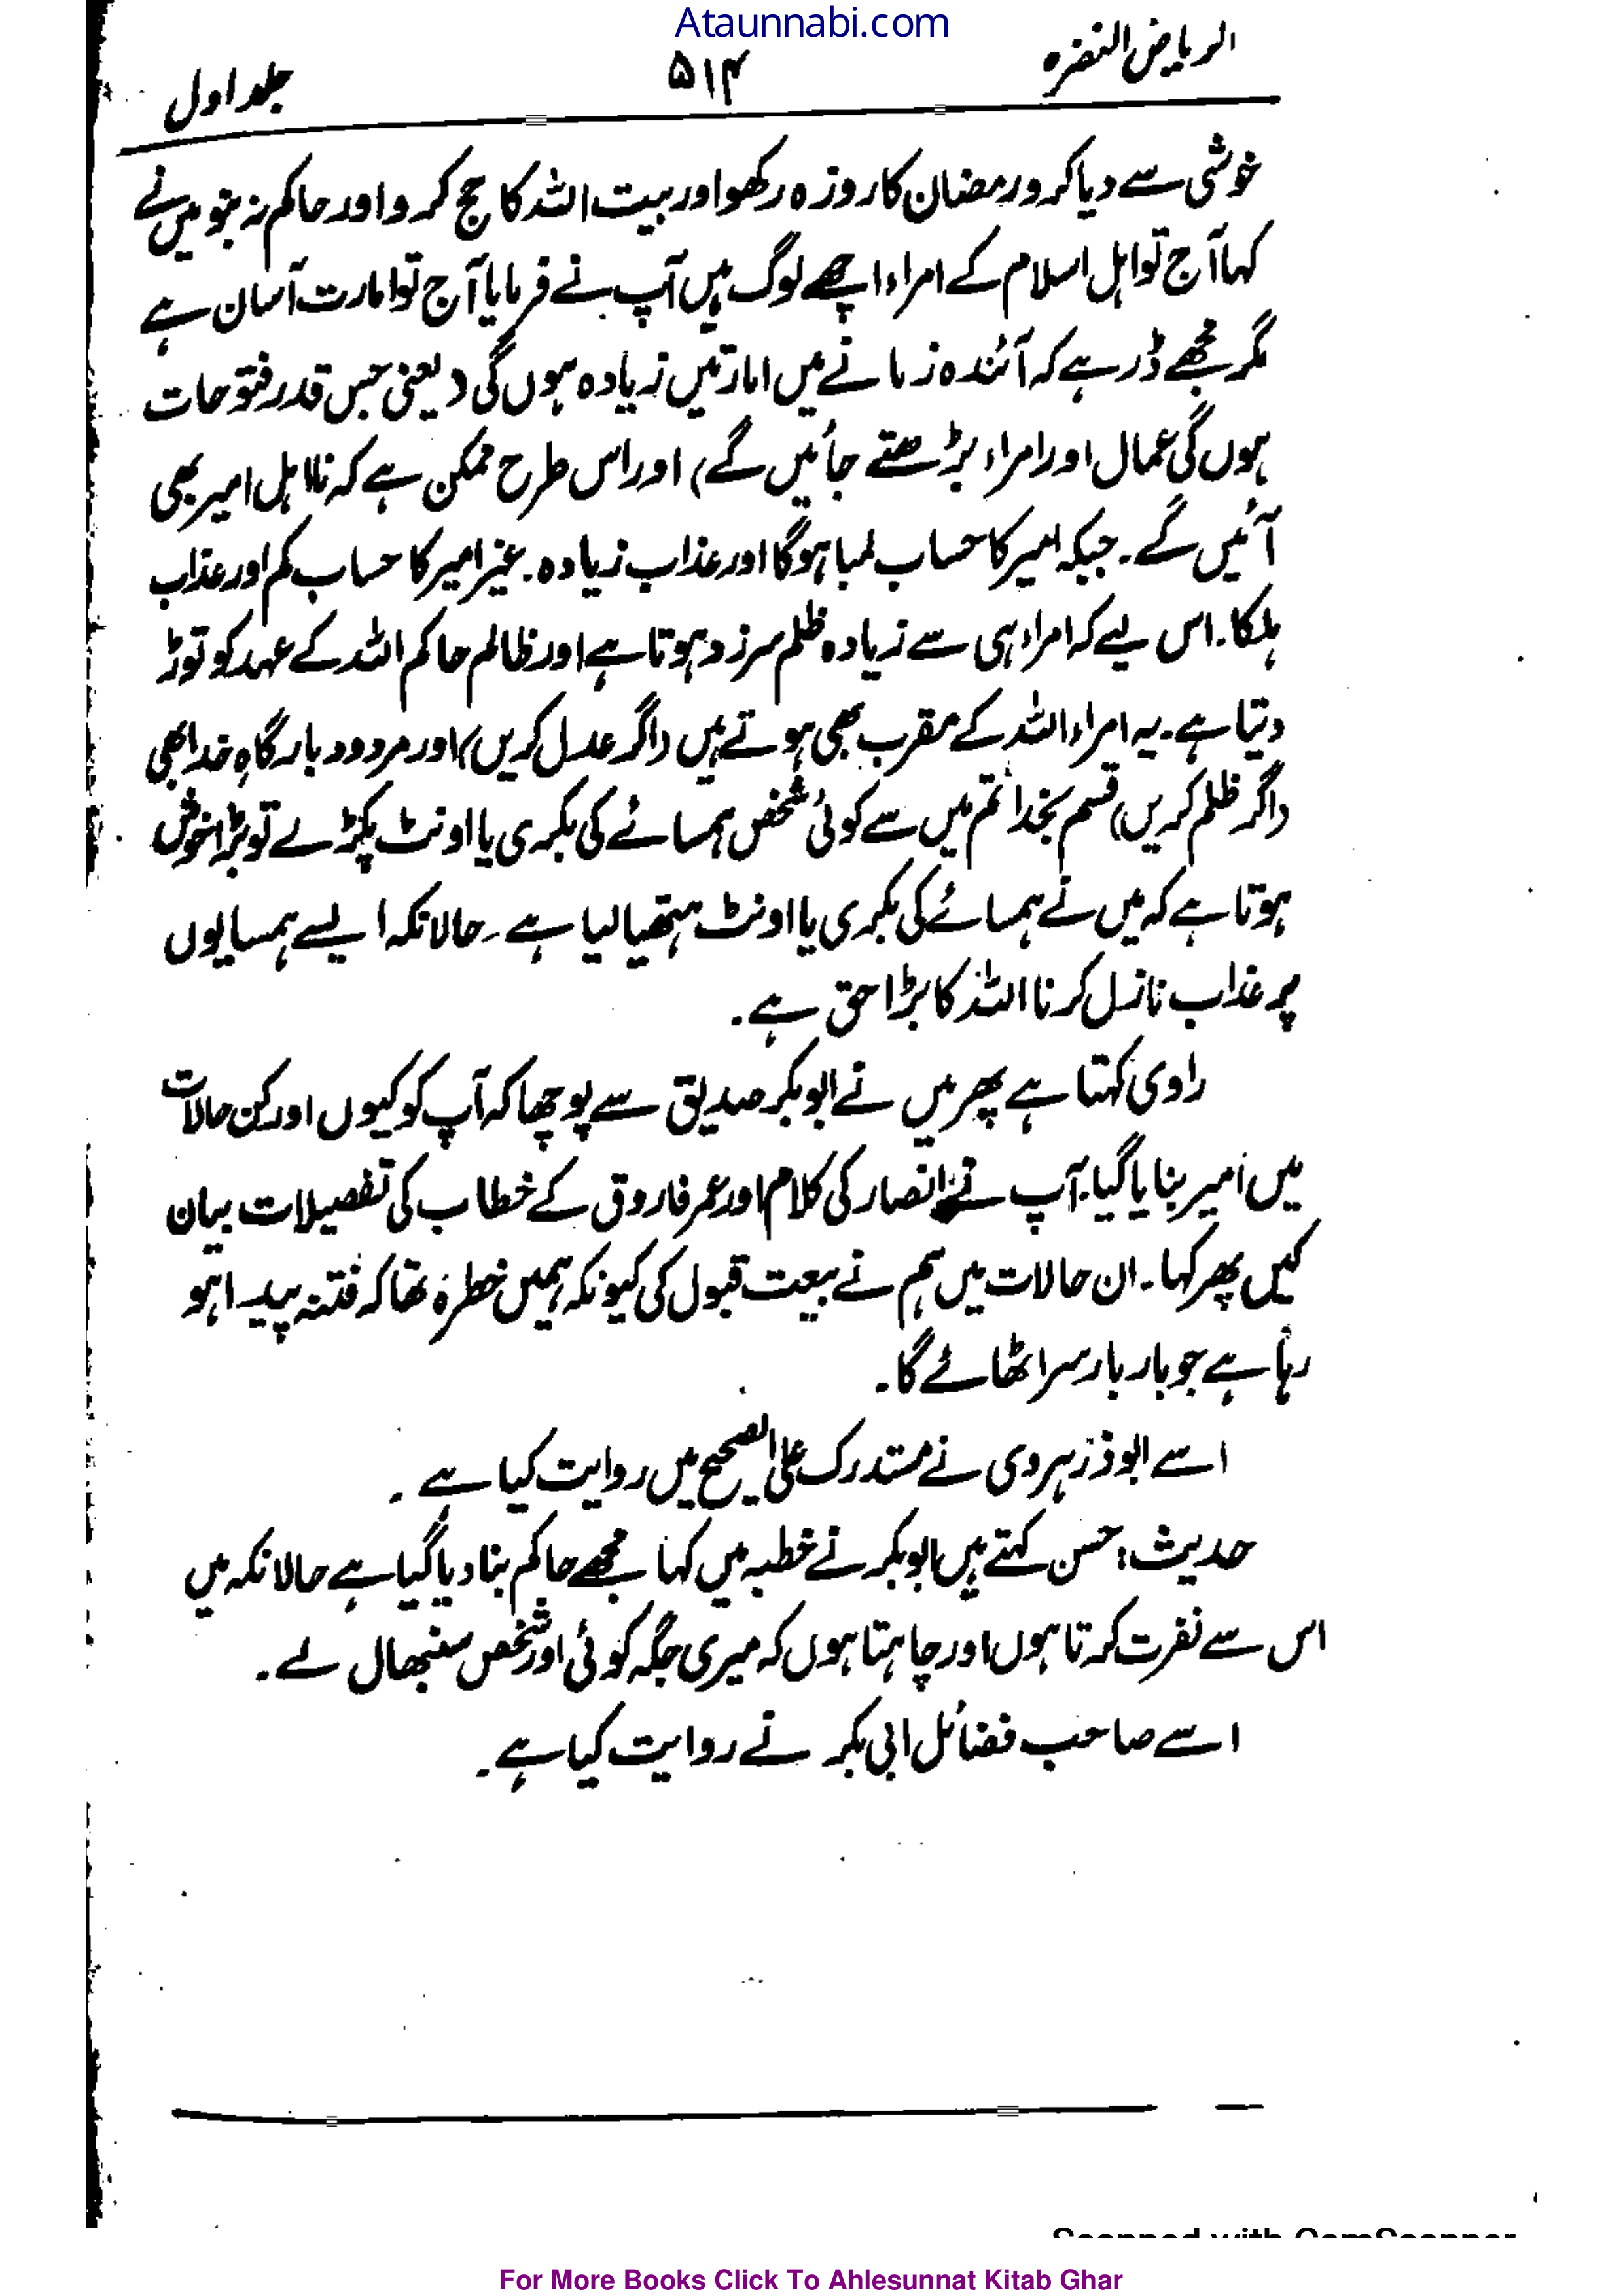 Ataunnabi.com
الریاض النضرہ
۵۱۴
جلد اول
خوشی سے دیا کرو رمضان کا روزہ رکھو اور بیت اللہ کا حج کرو اور حاکم نہ بنو میں نے
کہا آج تو اہل اسلام کے امراء اچھے لوگ ہیں آپ نے فرمایا آج تو امارت آسان ہے
مگر مجھے ڈر ہے کہ آئندہ زمانے میں امارتیں زیادہ ہوں گی (یعنی جس قدر فتوحات
ہوں گی عمال اور امراء بڑھتے جائیں گے) اور اس طرح ممکن ہے کہ نااہل امیر بھی
آئیں گے۔ جبکہ امیر کا حساب لمبا ہوگا اور عذاب زیادہ۔ غیر امیر کا حساب کم اور عذاب
ہلکا۔ اس لیے کہ امراء ہی سے زیادہ ظلم سرزد ہوتا ہے اور ظالم حاکم اللہ کے عہد کو توڑ
دیتا ہے۔ یہ امراء اللہ کے مقرب بھی ہوتے ہیں (اگر عدل کریں) اور مردود بارگاہِ خدا بھی
(اگر ظلم کریں) قسم بخدا تم میں سے کوئی شخص ہمسائے کی بکری یا اونٹ پکڑ لے تو بڑا خوش
ہوتا ہے کہ میں نے ہمسائے کی بکری یا اونٹ ہتھیا لیا ہے۔ حالانکہ ایسے ہمسایوں
پر عذاب نازل کرنا اللہ کا بڑا حق ہے۔
راوی کہتا ہے پھر میں نے ابوبکر صدیق سے پوچھا کہ آپ کو کیوں اور کن حالات
میں امیر بنایا گیا۔ آپ نے انصار کی کلام اور عمر فاروق کے خطاب کی تفصیلات بیان
کیں پھر کہا۔ ان حالات میں ہم نے بیعت قبول کی کیونکہ ہمیں خطرہ تھا کہ فتنہ پیدا ہو
رہا ہے جو بار بار سر اٹھائے گا۔
اسے ابوذر ہروی نے مستدرک علی الصحیح میں روایت کیا ہے۔
حدیث: حسن کہتے ہیں ابوبکر نے خطبہ میں کہا مجھے حاکم بنا دیا گیا ہے حالانکہ میں
اس سے نفرت کرتا ہوں اور چاہتا ہوں کہ میری جگہ کوئی اور شخص سنبھال لے۔
اسے صاحب فضائل ابی بکر نے روایت کیا ہے۔
Scanned with CamScanner
For More Books Click To Ahlesunnat Kitab Ghar